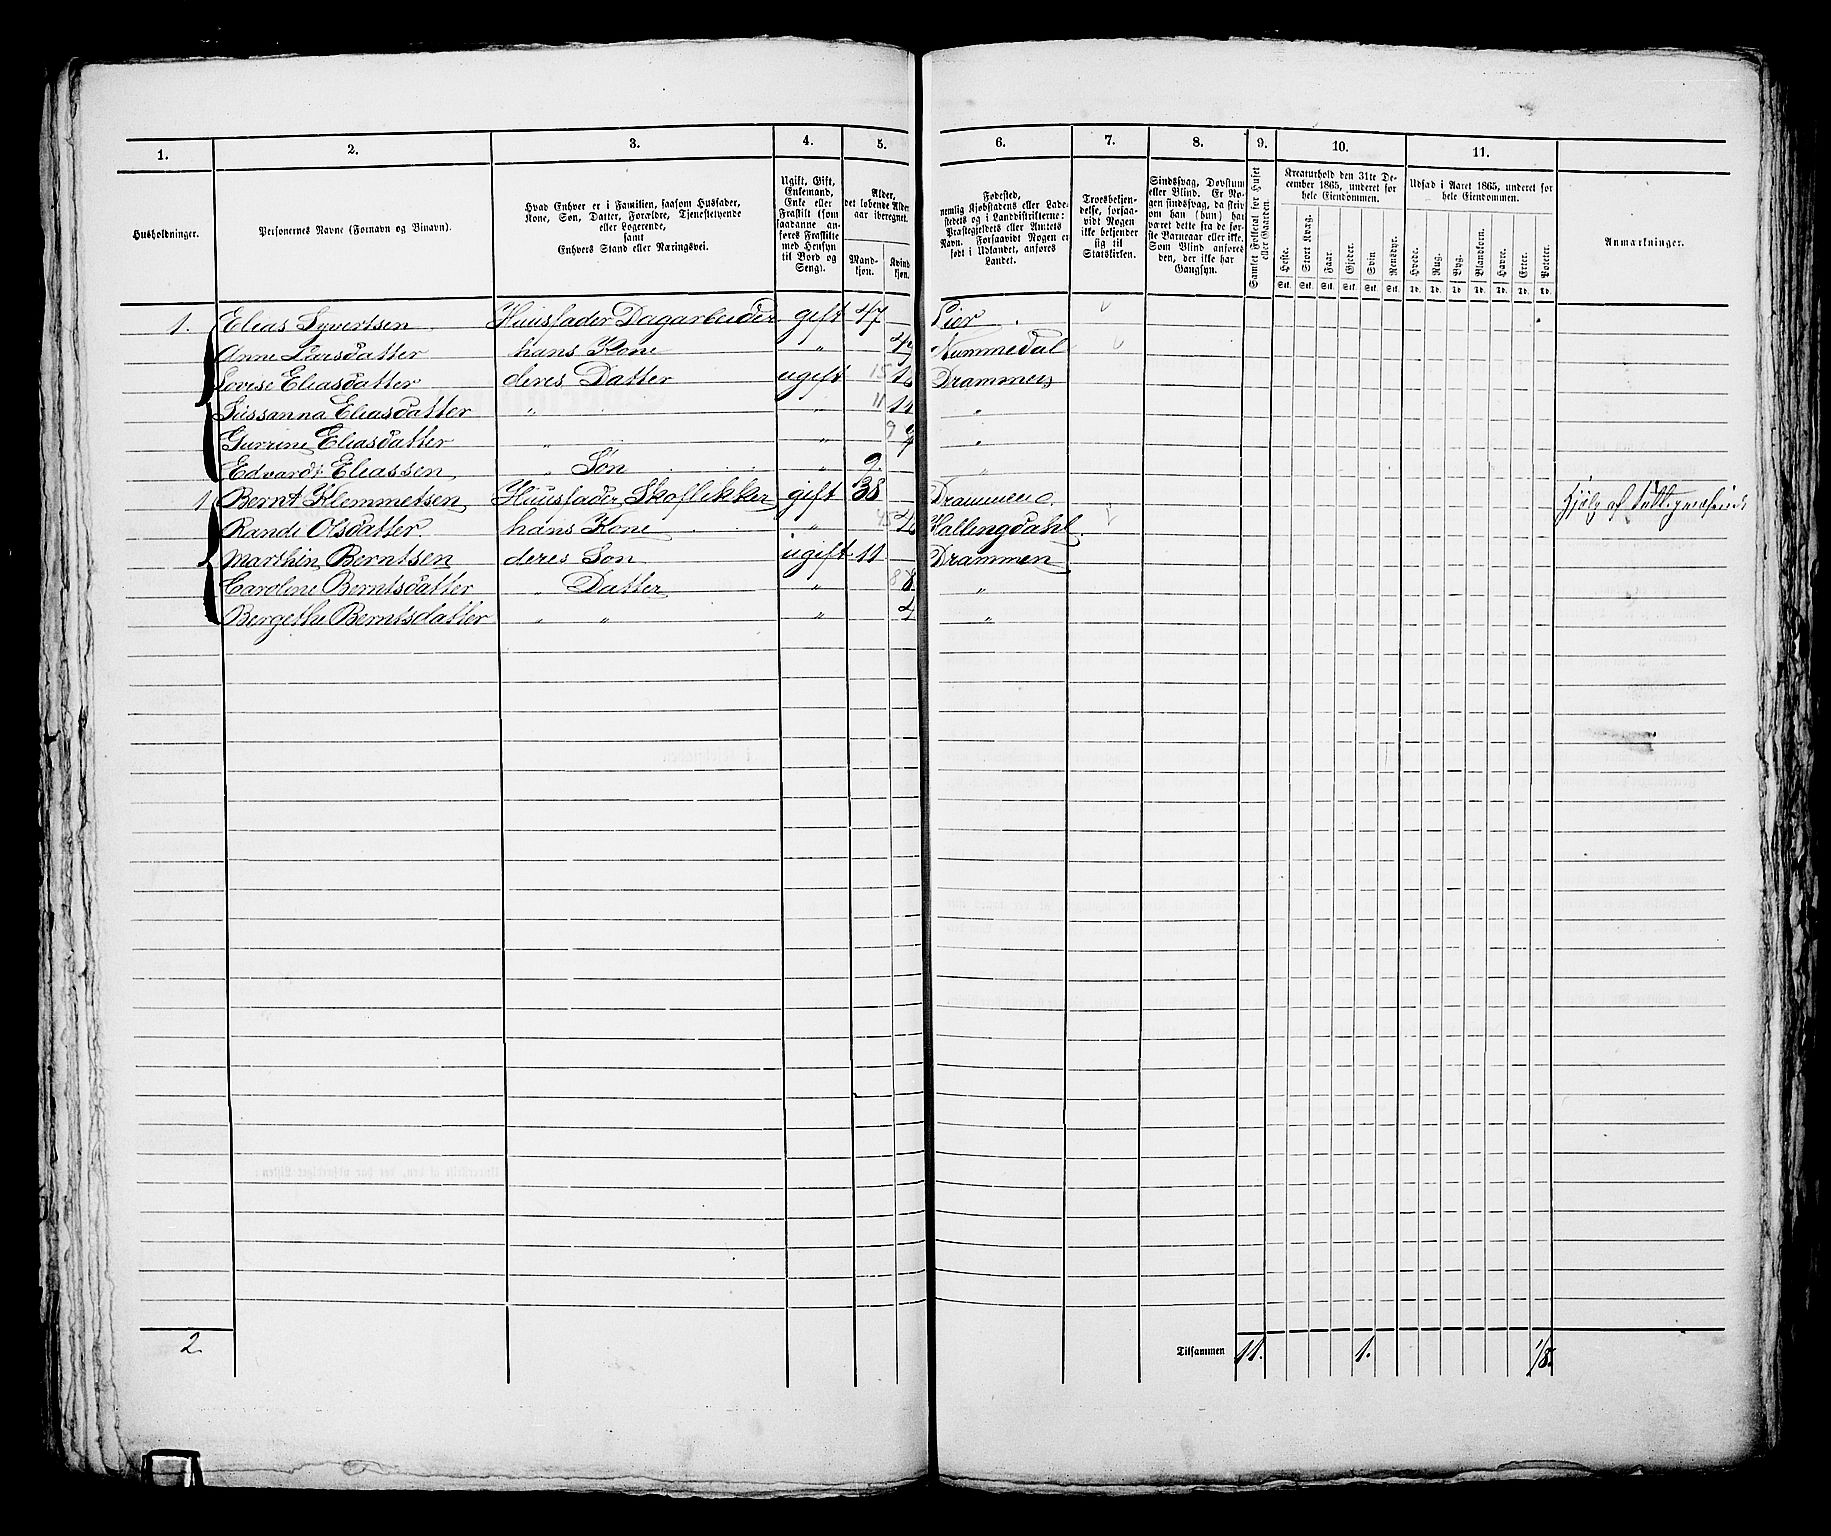 1. 2. 3. 4. 5. 6. 7. 8. 9. 10. 11.
Husholdninger.
Personernes Navne (Fornavn og Binavn).
Hvad Enhver er i Familien, saasom Husfader,
Kone, Søn, Datter, Forældre, Tjenestetyende
eller Logerende,
samt
Enhvers Stand eller Næringsvei.
Ugift, Gift,
Enkemand,
Enke eller
Fraskilt (som
saadanne an-
føres Fraskilte
med Hensyn
til Bord og
Seng).
Alder,
det løbende Alder
aar iberegnet.
Mand-
kjøn.
Kvind
kjøn.
Fødested,
nemlig Kjøbstadens eller Lade-
stedets og i Landdistrikterne:
Præstegjeldets eller Amtets
Navn. Forsaavidt Nogen er
født i Udlandet, anføres
Landet.
Troesbekjen-
delse, forsaa-
vidt Nogen
ikke bekjender
sig til
Statskirken.
Sindssvag, Døvstum
eller Blind. Er No-
gen sindssvag, da skriv
om han (hun) har
været dette fra de før-
ste Barneaar eller ikke.
Som Blind anføres
den, der ikke har
Gangsyn.
Samlet Folketal for Huset
eller Gaarden.
Kreaturhold den 31te De-
cember 1865, underet for
hele Eiendommen.
Heste. Stort Kvæg. Faar. Gjeder. Svin. Rensdyr.
Stk. Stk. Stk. Stk. Stk. Stk.
Udsæd i Aaret 1865, underet for
hele Eiendommen.
Hvede. Rug. Byg. Blandkorn. Havre. Erter. Poteter.
Td. Td. Td. Td. Td. Td. Td.
Anmærkninger.
1. Elias Syvertsen Huusfader Dagarbeider gift 47 Lier
Anne Larsdatter hans Kone " Nummedal
Lovise Eliasdatter deres Datter ugift 15 Drammen
Sussanna Eliasdatter " " 11 "
Gurrine Eliasdatter " " 9 "
Edvardt Eliassen " Søn " 9. "
1 Bernt Klemmetsen Huusfader Skoflikker gift 38 Drammen Hjelp af
Rande Olsdatter. hans Kone " 45 Hallingdahl
Marthin Berntsen deres Søn ugift 11 Drammen
Caroline Berntsdatter " Datter " 8 8. "
Bergethe Berntsdatter " " " 4 "
2. Tilsammen 11. 1. 1/8.